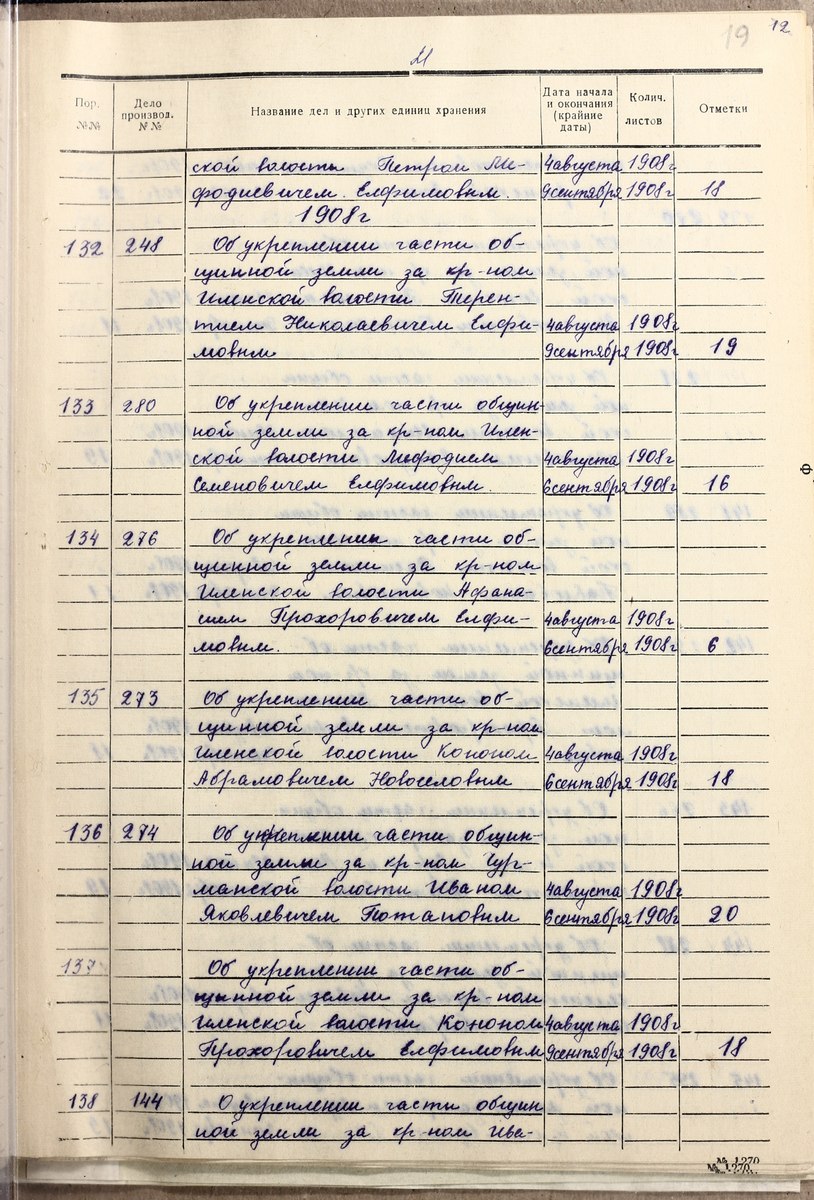 19 12
21
Пор. №№ Дело производ. №№ Название дел и других единиц хранения Дата начала и окончания (крайние даты) Колич. листов Отметки
ской волости Петром Ме- 4 августа 1908 г
фодиевичем Елфимовым. 9 сентября 1908 г 18
1908 г
132 248 Об укреплении части об-
щинной земли за кр-ном
Иленской волости Терен-
тием Николаевичем Елфи- 4 августа 1908 г
мовым 9 сентября 1908 г 19
133 280 Об укреплении части общин-
ной земли за кр-ном Илен-
ской волости Мефодием 4 августа 1908 г
Семеновичем Елфимовым. 6 сентября 1908 г 16
134 276 Об укреплении части об-
щинной земли за кр-ном
Иленской волости Афана-
сием Прохоровичем Елфи- 4 августа 1908 г
мовым. 6 сентября 1908 г 6
135 273 Об укреплении части об-
щинной земли за кр-ном
Иленской волости Кононом 4 августа 1908 г
Абрамовичем Новоселовым 6 сентября 1908 г 18
136 274 Об укреплении части общин-
ной земли за кр-ном Чур-
манской волости Иваном 4 августа 1908 г
Яковлевичем Потаповым 6 сентября 1908 г 20
137 Об укреплении части об-
щинной земли за кр-ном
Иленской волости Кононом 4 августа 1908 г
Прохоровичем Елфимовым 9 сентября 1908 г 18
138 144 О укреплении части общин
ной земли за кр-ном Ива-
№ 1270
№ 1270
Ф